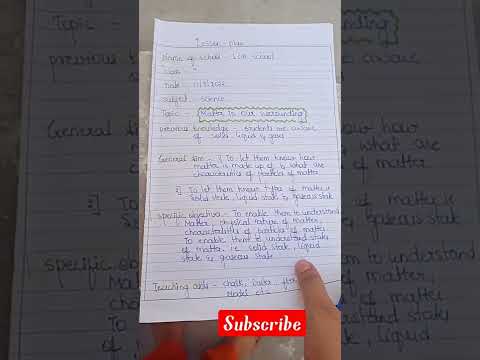 Lesson - plan
Name of school - S.D.M school
Class
Date
Subject - science
Topic - Matter In Our surrounding
previous knowledge - students are aware
of solid, liquid & gases
General Aim - 1) To let them know how
matter is made up of & what are
characteristics of particles of matter
2) To let them know types of matter ie
solid state, liquid state & gaseous state
specific objective - To enable them to understand
Matter, physical nature of matter,
characteristics of particle of matter.
To enable them to understand states
of matter i.e. solid state, liquid
state & gaseous state
Teaching aids - chalk, Duster,
Model etc
Subscribe